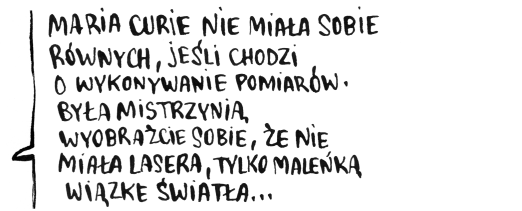 MARIA CURIE NIE MIAŁA SOBIE
RÓWNYCH, JEŚLI CHODZI
O WYKONYWANIE POMIARÓW.
BYŁA MISTRZYNIĄ,
WYOBRAŹCIE SOBIE, ŻE NIE
MIAŁA LASERA, TYLKO MALEŃKĄ
WIĄZKĘ ŚWIATŁA...